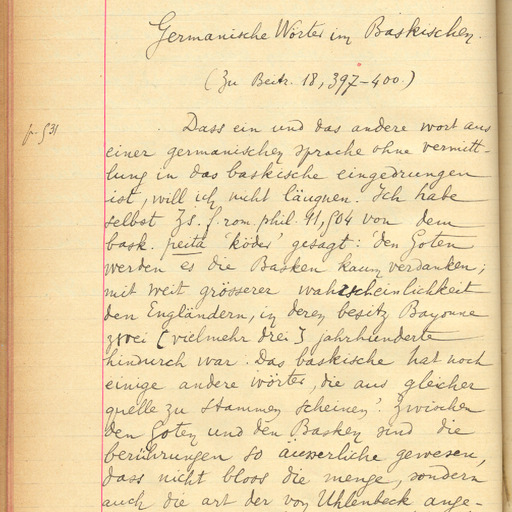 Germanische Wörter im Baskischen.
(Zu Beitr. 18, 397-400.)
p. 531
Dass ein und das andere wort aus
einer germanischen sprache ohne vermitt-
lung in das baskische eingedrungen
ist, will ich nicht läugnen. Ich habe
selbst Zs. f. rom. phil. 11, 504 von dem
bask. peita 'köder' gesagt: 'den Goten
werden es die Basken kaum verdanken;
mit weit grösserer wahrscheinlichkeit
den Engländern, in deren besitz Bayonne
zwei [vielmehr drei] jahrhunderte
hindurch war. Das baskische hat noch
einige andere wörter, die aus gleicher
quelle zu stammen scheinen'. Zwischen
den Goten und den Basken sind die
berührungen so äusserliche gewesen,
dass nicht bloos die menge, sondern
auch die art der von Uhlenbeck ange-